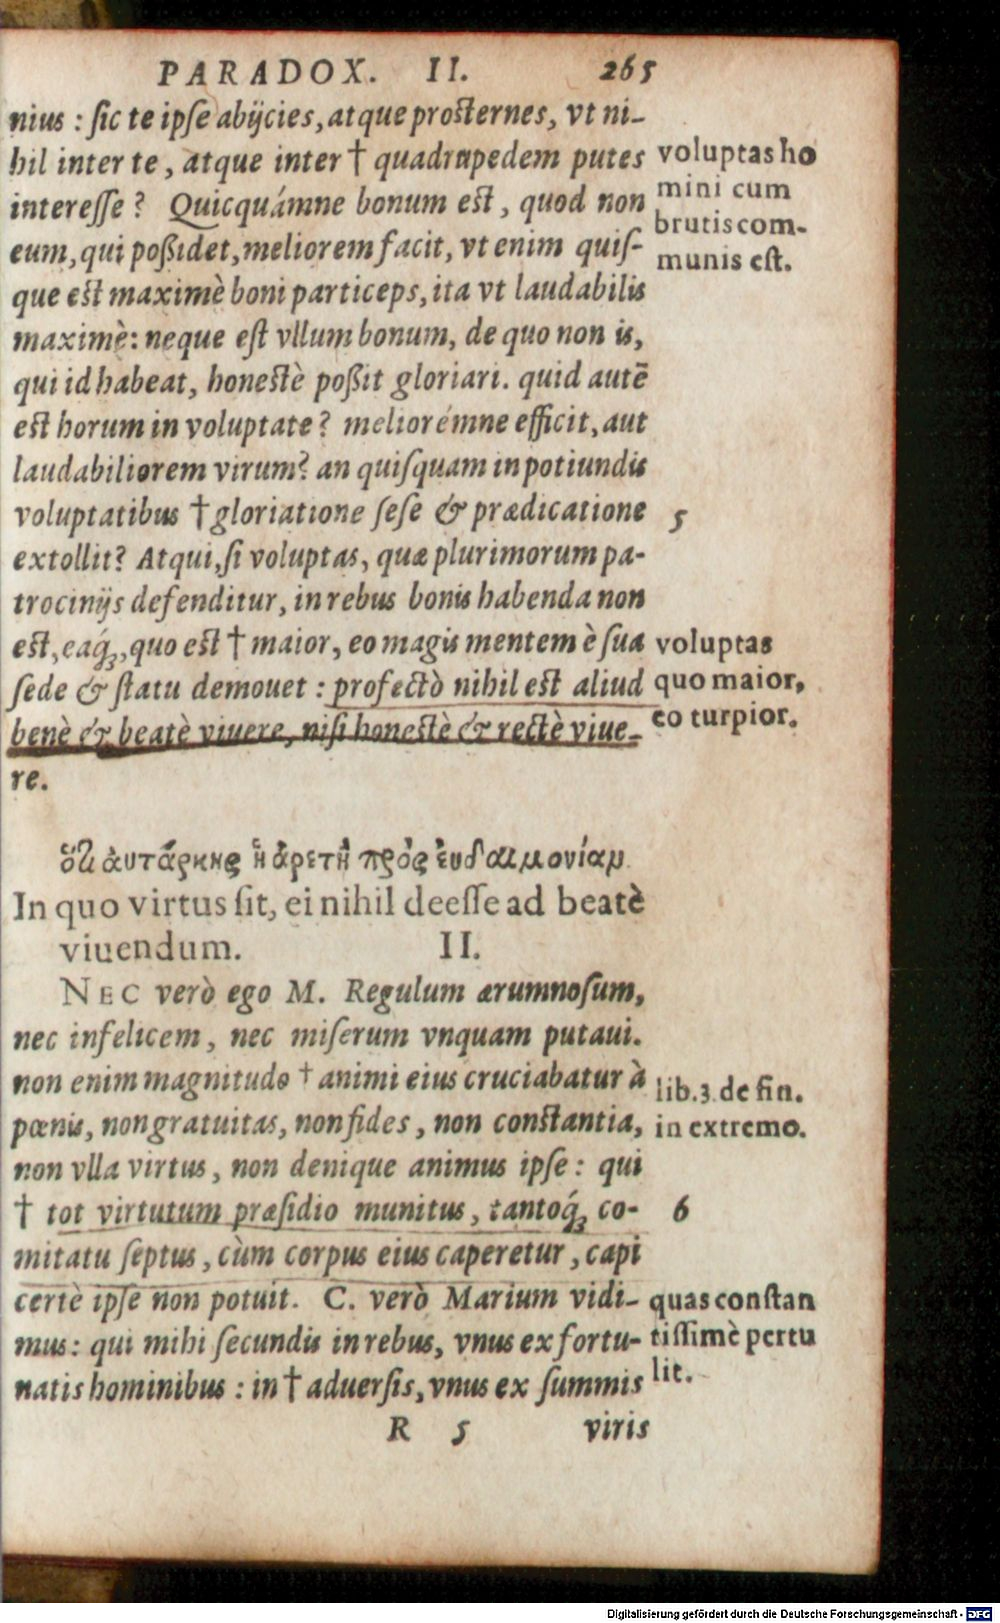 PARADOX. II. 265
nius : sic te ipse abijcies, atque prosternes, vt ni-
hil inter te, atque inter † quadrupedem putes
interesse ? Quicquámne bonum est, quod non
eum, qui possidet, meliorem facit, vt enim quis-
que est maximè boni particeps, ita vt laudabilis
maximè: neque est vllum bonum, de quo non is,
qui id habeat, honestè possit gloriari. quid autē
est horum in voluptate ? meliorémne efficit, aut
laudabiliorem virum? an quisquam in potiundis
voluptatibus † gloriatione sese & prædicatione
extollit? Atqui, si voluptas, quæ plurimorum pa-
trocinijs defenditur, in rebus bonis habenda non
est, eaq́;, quo est † maior, eo magis mentem è sua
sede & statu demouet : profectò nihil est aliud
benè & beatè viuere, nisi honestè & rectè viue-
re.
voluptas ho
mini cum
brutis com-
munis est.
5
voluptas
quo maior,
eo turpior.
ὅτι ἀυτάρκης ἡ ἀρετὴ πρὸς ἐυδαιμονίαν.
In quo virtus sit, ei nihil deesse ad beatè
viuendum. II.
NEC verò ego M. Regulum ærumnosum,
nec infelicem, nec miserum vnquam putaui.
non enim magnitudo † animi eius cruciabatur à
pœnis, non grauitas, non fides, non constantia,
non vlla virtus, non denique animus ipse : qui
† tot virtutum præsidio munitus, tantoq́; co-
mitatu septus, cùm corpus eius caperetur, capi
certè ipse non potuit. C. verò Marium vidi-
mus: qui mihi secundis in rebus, vnus ex fortu-
natis hominibus : in † aduersis, vnus ex summis
lib. 3. de fin.
in extremo.
6
quas constan
tissimè pertu
lit.
R 5 viris
Digitalisierung gefördert durch die Deutsche Forschungsgemeinschaft - DFG